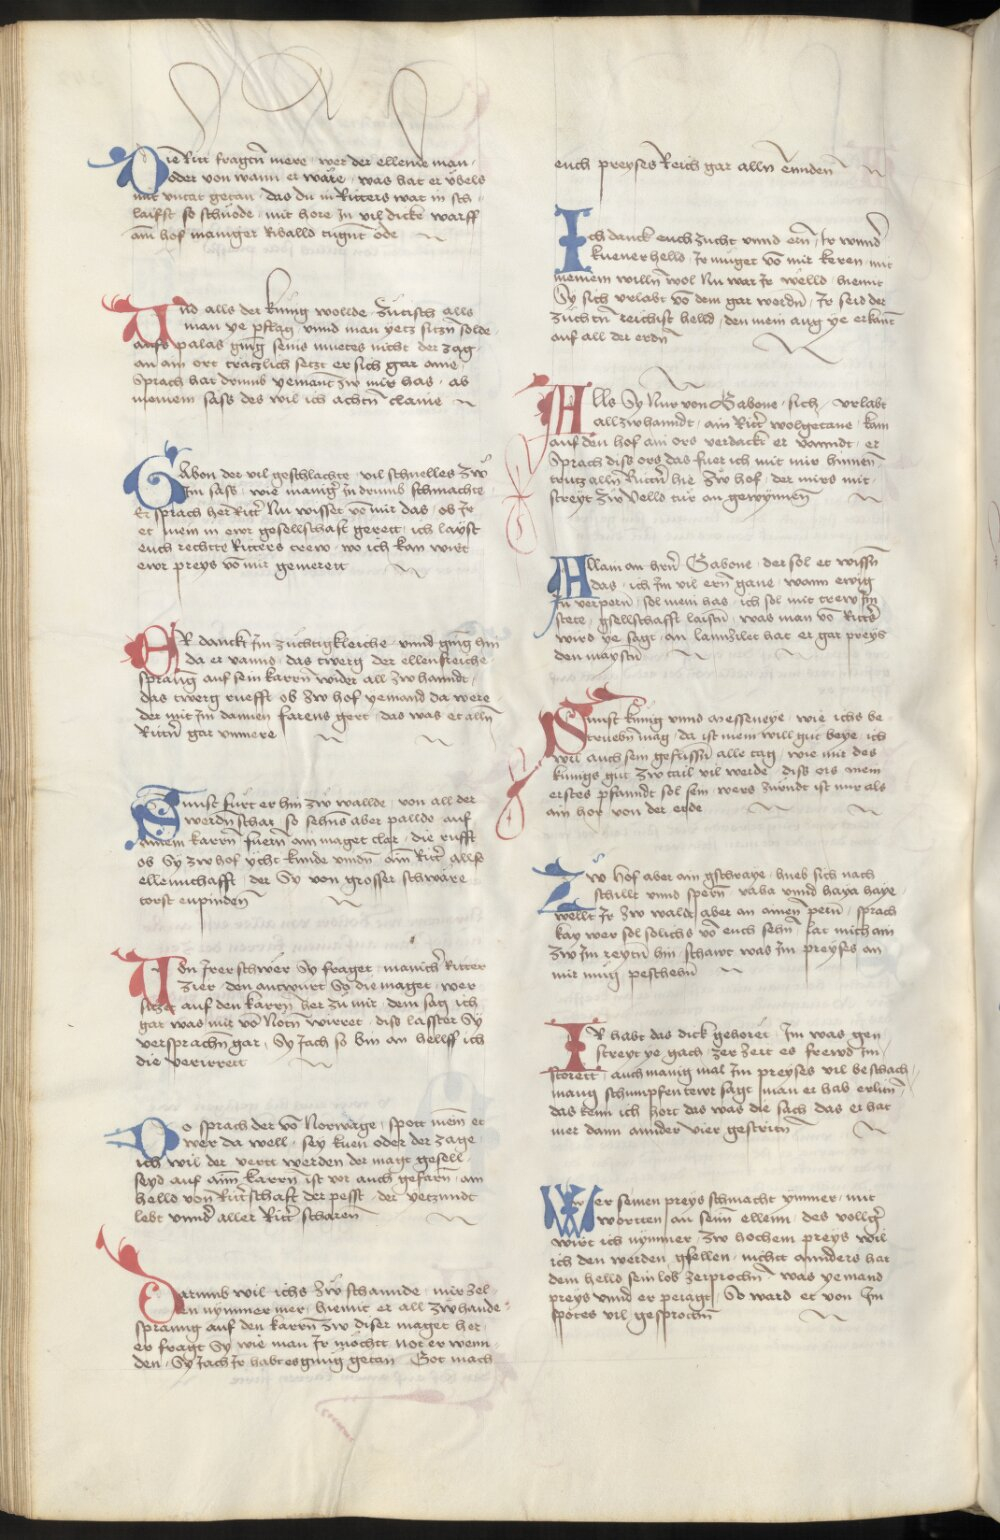 Die Ritt fragtn mere · wer der ellende man ·
oder von wann er wäre · was hat er übels
mit untat getan · das du in Ritters wat in sch
laifst so schnöde · mit hore In vil dicke warff
am hof maniger Riballd tugnt öde
Und alls der kunig wollde · Zu tisch alls
man ye pflag vnnd man yetz sitzn solde
aufs palas gieng seins muetes nicht der zag
an ain ort träczlich setzt er sich gar aine
Sprach hat drumb yemant zw mir has · ab
meinem sass des wil ich achtn claine
Gabon der vil geschlachte · vil schnelles zw
Im sass · wie manigr In drumb schmachte
Er sprach her Ritr Nu wisset vo mir das · ob Ir
et mein in ewr gesellschaft geret · ich laist
euch rechte Ritters trew · wo ich kan wirt
ewr preys vo mir gemeret
ER danckt Im züchtigkleiche · vnnd gieng hin
da er vanns · das twerg der ellensreiche
sprang auf sein karrn wider all zw hanndt ·
das twerg ruefft ob zw hof yemand da were
der mit Im dannen farens gert · das was et alln
Ritrn gar vnmere
Sunst furt er hin zw wallde · von all der
werdn schar · so sehns aber pallde auf
ainem karrn fuern ain maget clar · die rufft
ob Sy zw hof ycht kunde vindn ain Ritr allso
ellennthafft · der Sy von grosser schwäre
torst enpinden
Von Irer schwer Sy fraget · manicher Ritter
Zier · den antwurt So die maget · wer
sitzet auf den karrn her zu mir · dem sag ich
gar was mir vo Notn wirret · diss lasster Sy
versprachn gar · Sy Jach so bin an hellff ich
die verirrett
Do sprach der vo Norwäge · spott mein et
wer da well · sey kuen oder der zage ·
ich wil der vertt werden der magt gesell
seyd auf aim karrn ist vor auch gefarn · ain
helld von Ritrschaft der pesst · der yetzundt
lebt vnndr aller Ritr scharen
Darumb wil ichs zw schannde · mir zel
en nymmer mer · hiemit er all zw hande
sprang auf den karrn zw diser maget her ·
er fragt Sy wie man Ir möcht not erwenn
den · Sy Jach Ir habt es gnug getan Got mach
euch preyses Reich gar alln ennden
Ich danck euch zucht vnnd ern · Ir wunnd
kuener helld · Ir müget vo mir keren · mit
meinem willn wol Nu war Ir welld · hiemit
Sy sich vrlabt vo dem gar werdn · Ir seid der
züchtn reichist helld · den mein aug ye erkant
auf all der erdn
Alls Sy Nur von Gabone · sich vrlabt
all zwhanndt · ain Ritr wolgetane · kam
auf den hof ain ors verdackt er vanndt · er
Sprach diss ors das fuer ich mit mir hinnen
trutz alln Rittrn hie zw hof · der mirs mit
streyt zw velld tür an gewynnen
Allain an hrn Gabone · der sol et wissn
das · ich Im vil ern gane · wann ewig
In verpern · sol mein has · ich sol mit trew Im
stete · gsellschafft laistn · was man vo Ritrs
wird ye sagt · an lannzilet hat er gar preys
den maystn
Sunst kunig vnns messeneye · wie ichs be
truebn mag · da ist mein will gut beye · ich
wil auch sein geflissn alle tag · wie mir des
kunigs gut zw tail vil werde · diss ors mein
erstes pfanndt sol sein · wers zürndt ist mir als
ain hor von der erde
Zw hof aber ain gschraye · hueb sich nach
schillt vnnd spern vaha vnnd haya haye
wellt Ir zw walde aber an ainen pern · sprach
kay wer sol solichs vo euch sehn lat mich ain
zw Im reytn hin schawt was Im preyses an
mir müg peschehn
IR habt das dick gehöret Im was gen
streyt ye gach · zer zeit es frewd Im
storett · auch manig mal Im preyses vil beschach
manig schumpfentewr sagt man er hab erlitn
das kenn ich hort das was die sach das er hat
mer dann annder vier gestritn
Wer seinen preys schmacht ymmer · mit
wortten an seinn ellenn · des vollgr
wirt ich nymmer · zw hochem preys wil
ich den werden gsellen · nicht annders hat
dem helld sein lob zerprochn was yemand
preys vnnd er peiagt · So ward et von Im
spotes vil gesprochn